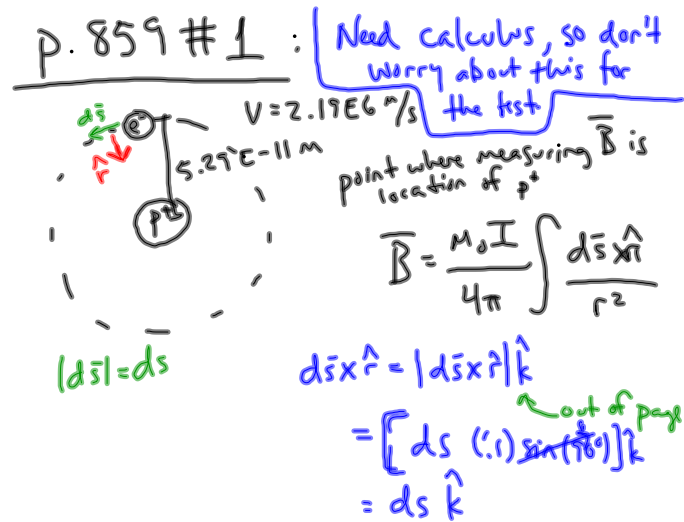 p. 859 #1 :
Need calculus, so don't
worry about this for
the test
ds̄
e⁻
V = 2.19E6 m/s
r̂
5.29E-11 m
p⁺
point where measuring B̄ is
location of p⁺
B̄ = μ₀I/4π ∫ ds̄ x r̂/r²
|ds̄| = ds
ds̄ x r̂ = |ds̄ x r̂| k̂
out of page
= [ds (1) sin(90°)] k̂
= ds k̂